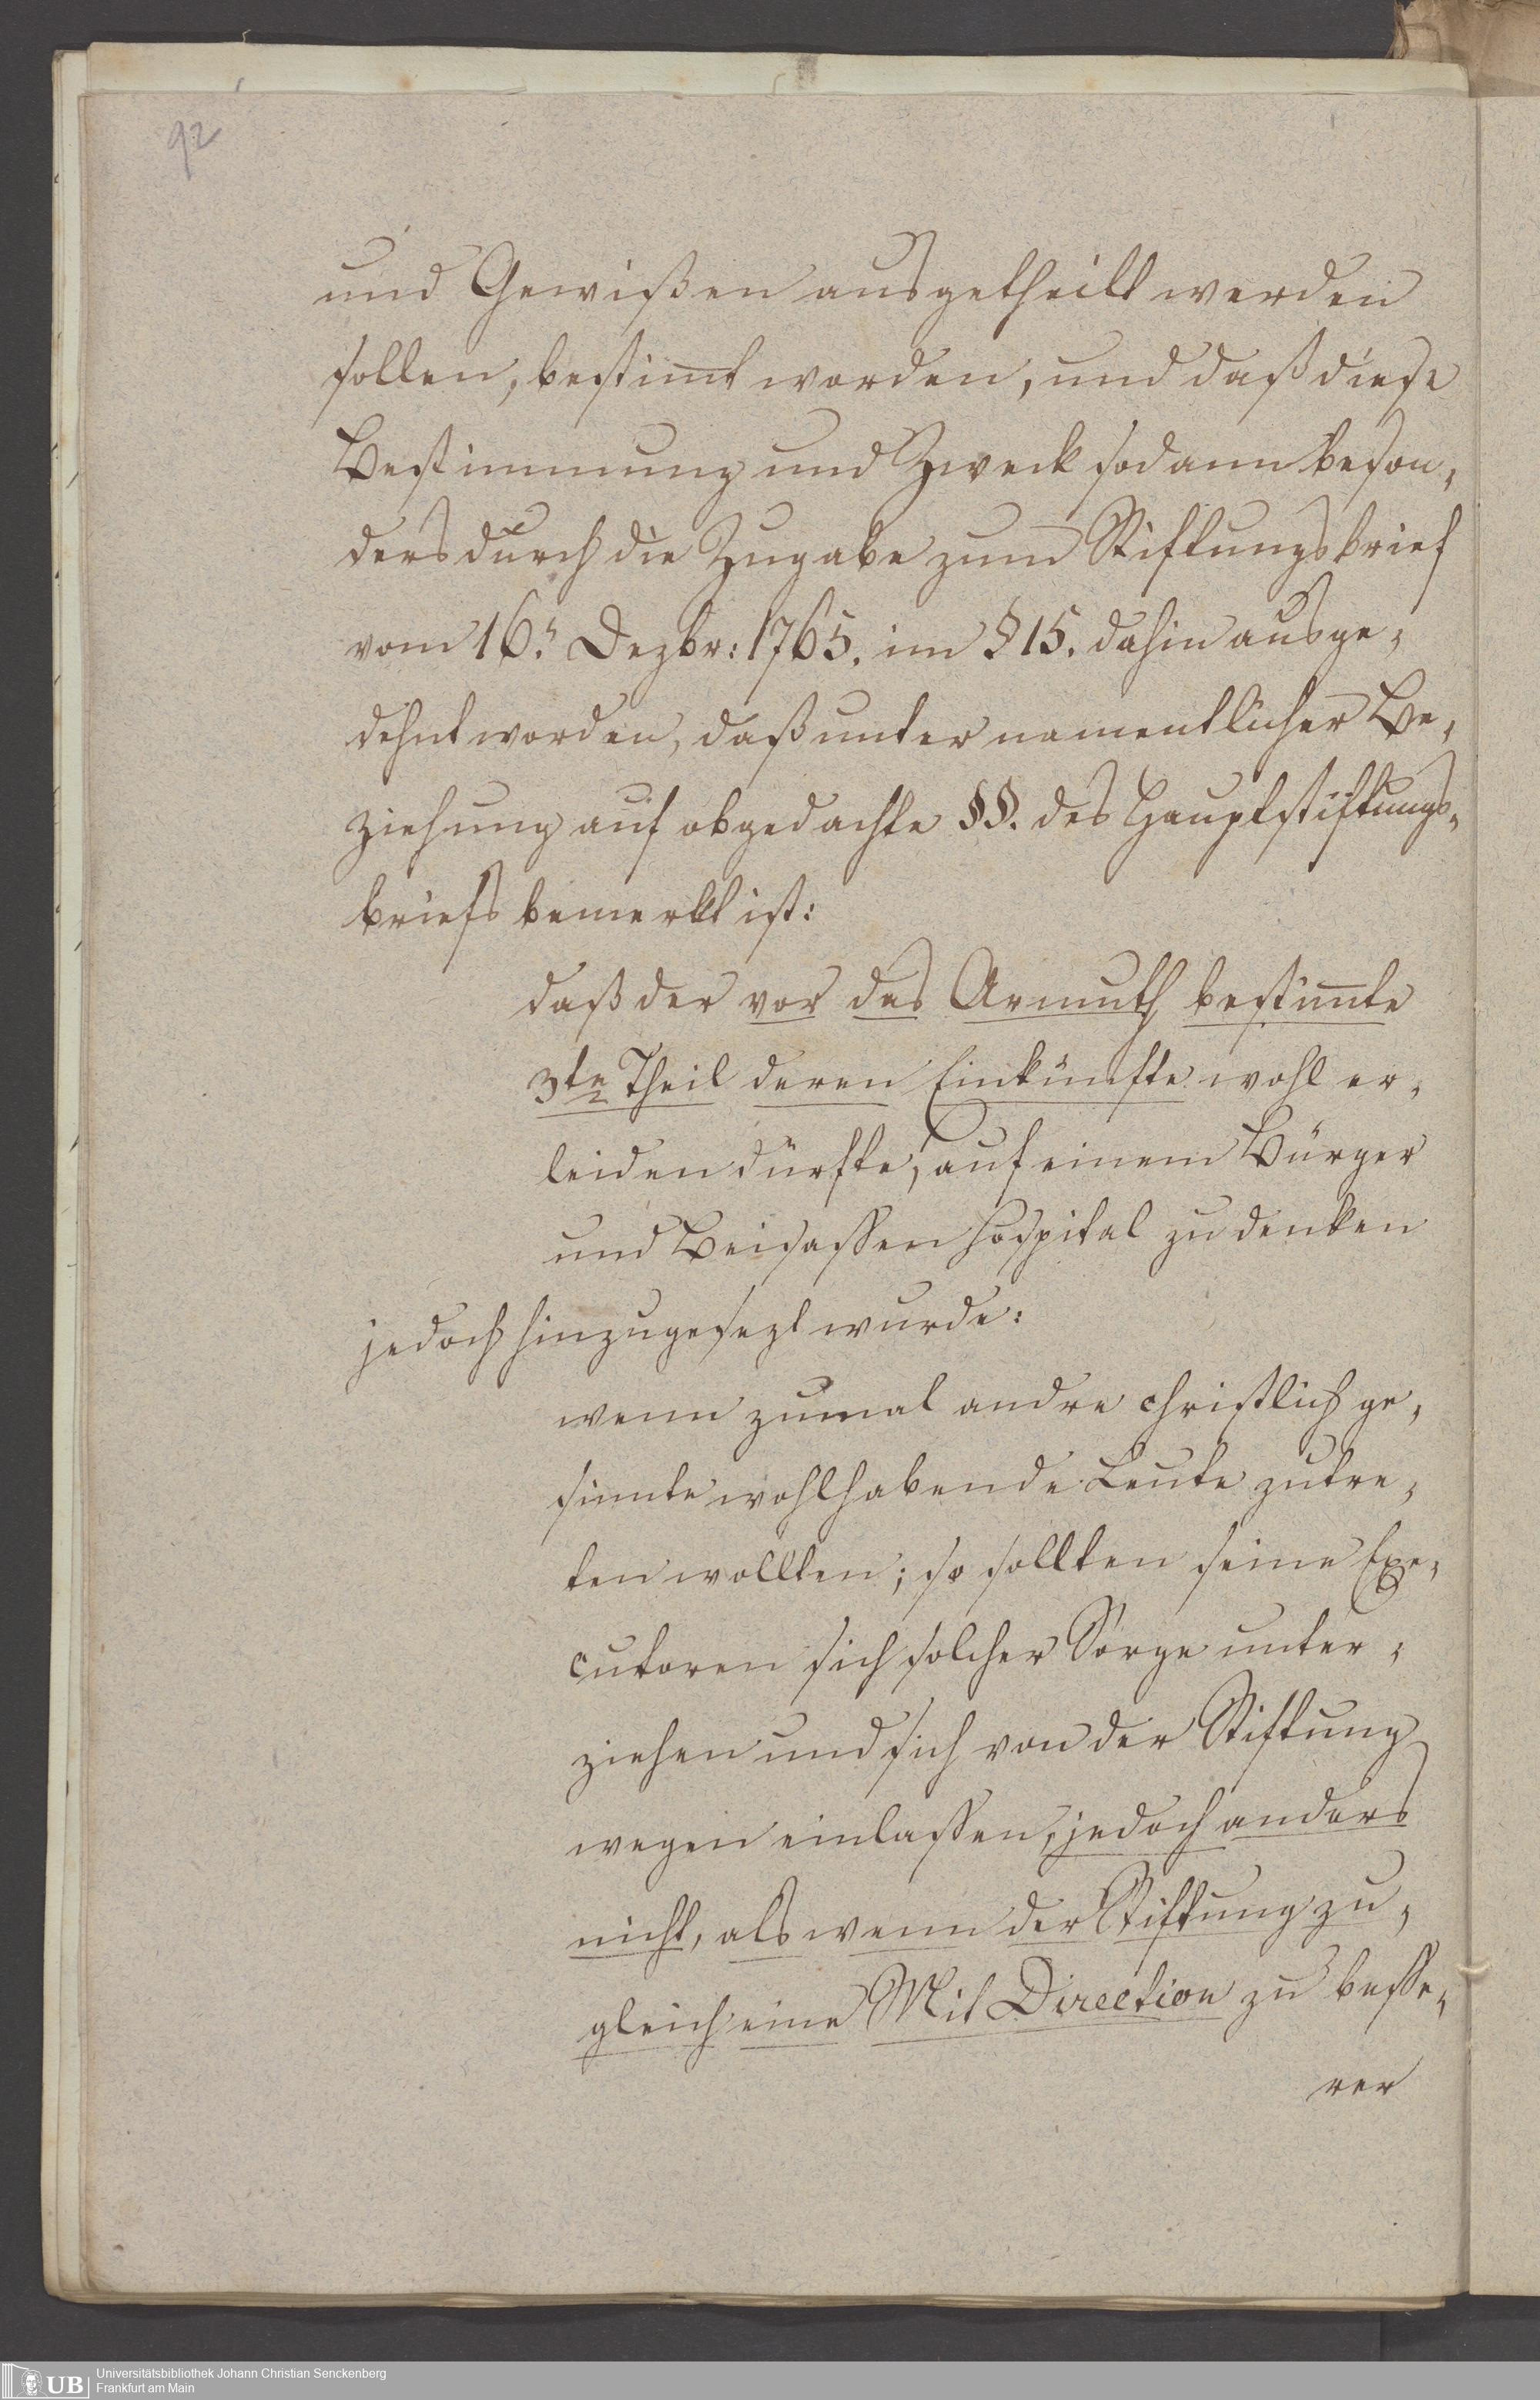 92
und Gewißen ausgetheilt werden
sollen, bestim̅t worden, und daß diese
Bestimmung und Zweck sodann beson-
ders durch die Zugabe zum Stiftungsbrief
vom 16.n Dezbr: 1765. im § 15. dahin ausge-
dehnt worden, daß unter namentlicher Be-
ziehung auf obgedachte §§. des Hauptstiftungs-
briefs bemerkt ist:
daß der vor das Armuth bestim̅te
3te Theil deren Einkünfte wohl er-
leiden dürfte, auf einem Bürger
und Beisassen Hospital zu denken
jedoch hinzugesezt wurde:
wenn zumal andre christlich ge-
sinnte wohlhabende Leute zutre-
ten wollten; so sollten seine Exe-
cutoren sich solcher Sorge unter-
ziehen und sich von der Stiftung
wegen einlassen, jedoch anders
nicht, als wenn der Stiftung zu-
gleich eine Mit Direction zu besse-
rer
UB
Universitätsbibliothek Johann Christian Senckenberg
Frankfurt am Main